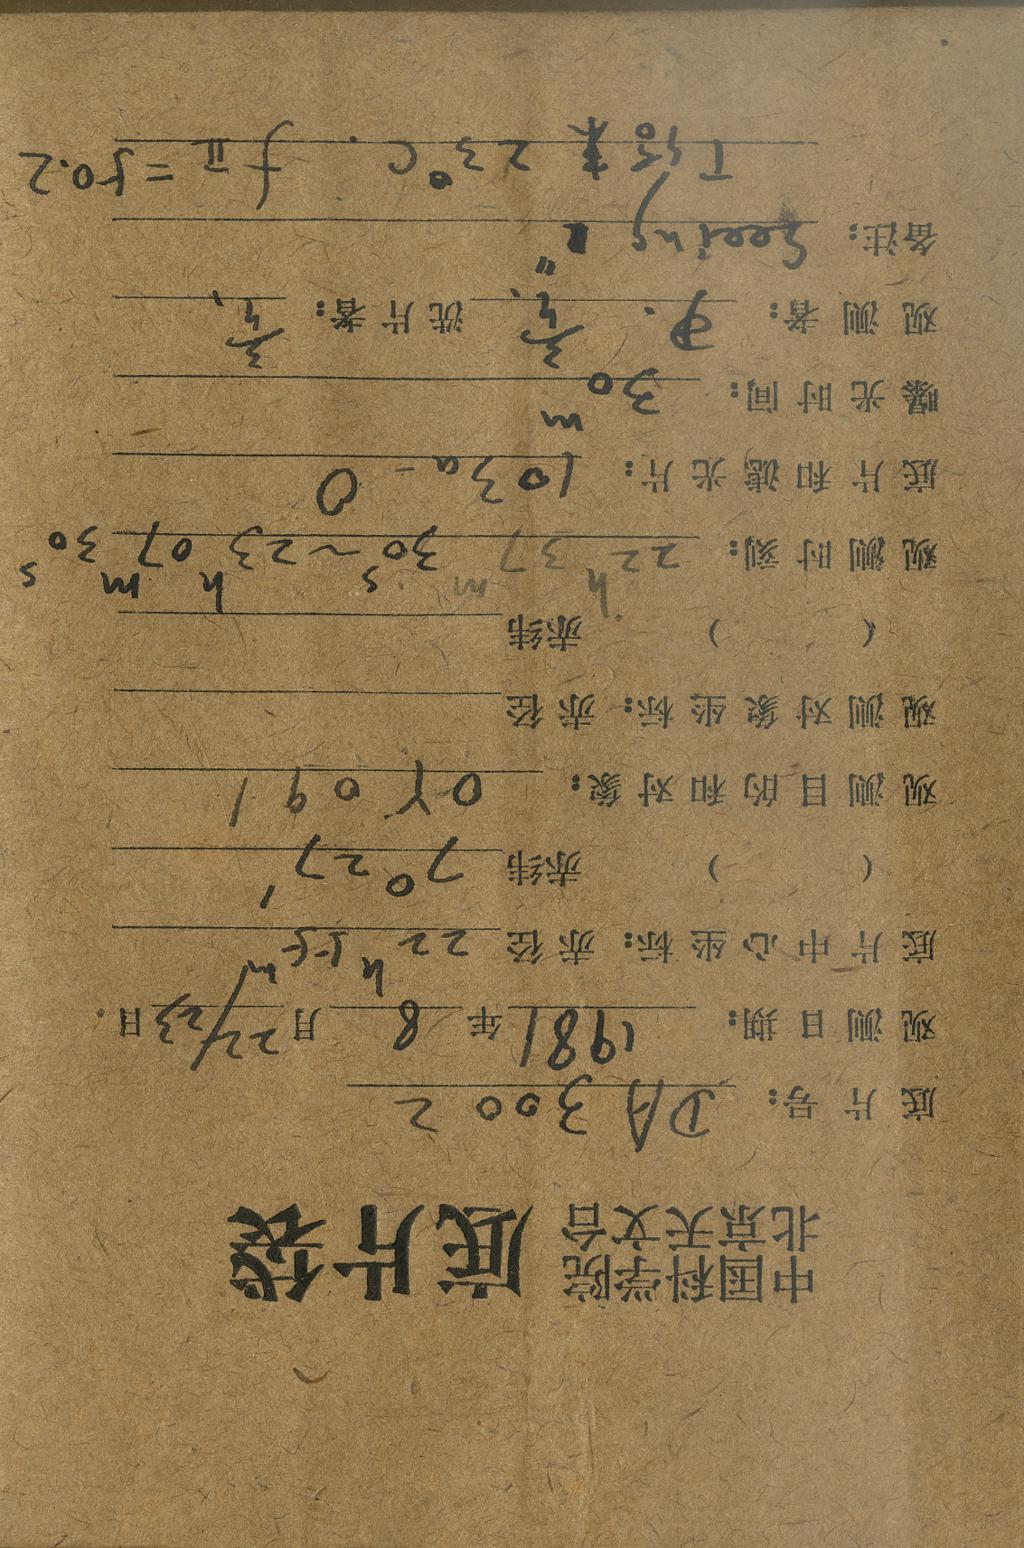 中国科学院
北京天文台 底片袋
底片号: DA 3002
观测日期: 1981年8月22/23日.
底片中心坐标: 赤径 22h 55m
( ) 赤纬 7° 27'
观测目的和对象: OY 091
观测对象坐标: 赤径
( ) 赤纬
观测时刻: 22h 37m 30s ~ 23h 07m 30s
底片和滤光片: 103a-O
曝光时间: 30m
观测者: 洗片者:
备注: Seeing
23°C. f II = 50.2